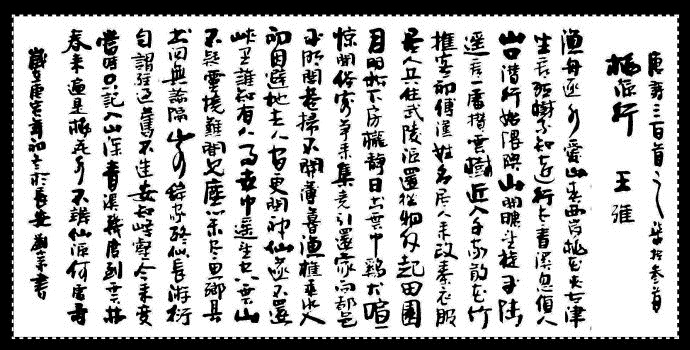 唐詩三百首之柒拾叁首
桃源行 王維
漁舟逐水愛山春兩岸桃花夾去津
坐看紅樹不知遠行尽青溪忽值人
山口潛行始隈隩山開曠望旋平陸
遥看一處攢雲樹近入千家散花竹
樵客初傳漢姓名居人未改秦衣服
居人共住武陵源還從物外起田園
月明松下房櫳靜日出雲中鷄犬喧
驚聞俗客爭來集竞引還家問都邑
平明閭巷掃花開薄暮漁樵乘水入
初因避地去人間更聞神仙遂不還
峽里誰知有人事世中遥望空雲山
不疑靈境難聞見塵心未尽思鄉縣
出洞無論隔山水辭家終擬長游衍
自謂經過舊不迷安知峰壑今來變
當時只記入山深青溪幾度到雲林
春來遍是桃花水不辨仙源何處尋
歲在庚寅年初冬於長安劉書